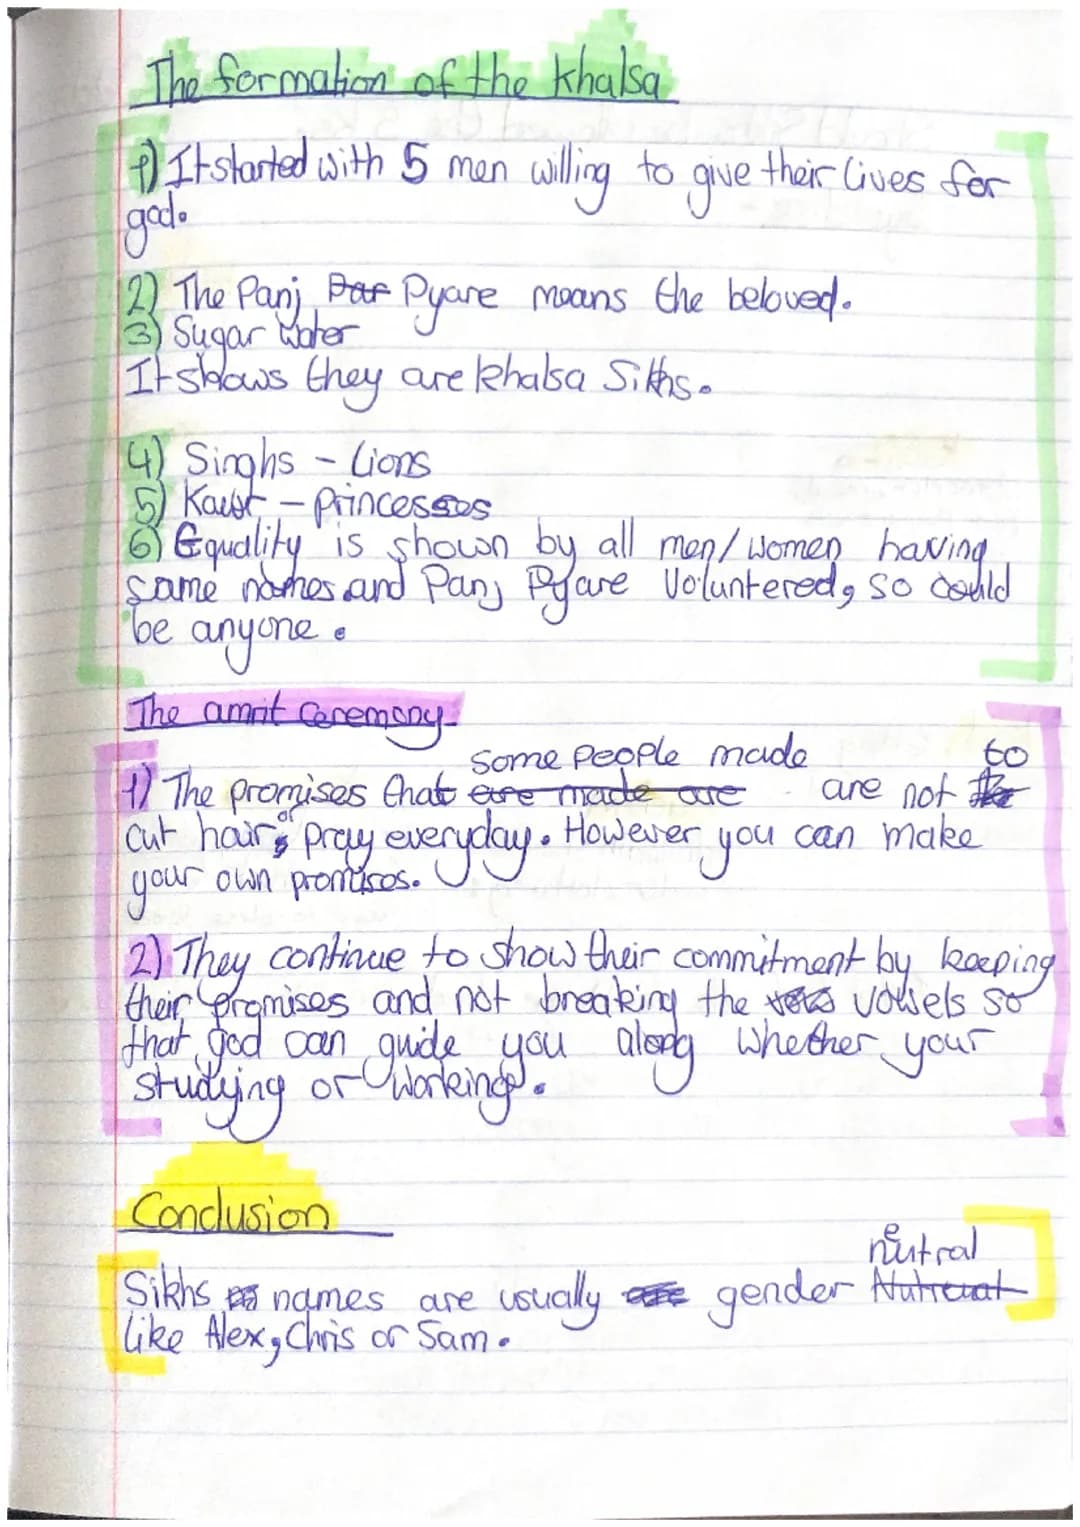 The formation of the khalsa
1) It started with 5 men willing to give their lives for
god.
2) The Panj Par Pyare means the beloved.
3) Sugar Water
It shows they are khalsa Sikhs.
4) Singhs - Lions
5) Kaur - Princesses
6) Equality is shown by all men/women having
same names and Panj Pyare Voluntered, so could
be anyone.
The amrit Ceremony
some people made to
1) The promises that are made are are not the
cut hair, or pray everyday. However you can make
your own promises.
2) They continue to show their commitment by keeping
their promises and not breaking the vowels so
that god can guide you along whether your
studying or working.
Conclusion
neutral
Sikhs names are usually gender Nutreual
like Alex, Chris or Sam.